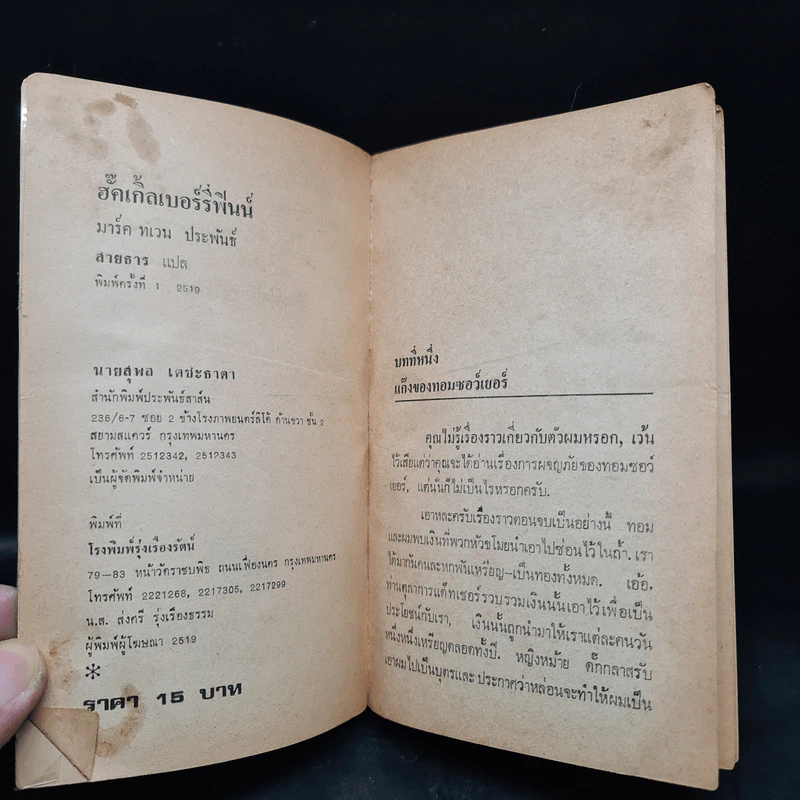 ฮั๊คเกิ้ลเบอร์รี่ฟินน์
มาร์ค ทเวน ประพันธ์
สายธาร แปล
พิมพ์ครั้งที่ 1 2519
นายสุพล เตชะธาดา
สำนักพิมพ์ประพันธ์สาส์น
236/6-7 ซอย 2 ข้างโรงภาพยนตร์ลิโด้ ด้านขวา ชั้น 2
สยามสแควร์ กรุงเทพมหานคร
โทรศัพท์ 2512342, 2512343
เป็นผู้จัดพิมพ์จำหน่าย
พิมพ์ที่
โรงพิมพ์รุ่งเรืองรัตน์
79-83 หน้าวัดราชบพิธ ถนนเฟื่องนคร กรุงเทพมหานคร
โทรศัพท์ 2221268, 2217305, 2217299
น.ส. ส่งศรี รุ่งเรืองธรรม
ผู้พิมพ์ผู้โฆษณา 2519
*
ราคา 15 บาท
บทที่หนึ่ง
แก๊งของทอมซอว์เยอร์
คุณไม่รู้เรื่องราวเกี่ยวกับตัวผมหรอก, เว้น
ไว้เสียแต่ว่าคุณจะได้อ่านเรื่องการผจญภัยของทอมซอว์
เยอร์, แต่นั่นก็ไม่เป็นไรหรอกครับ.
เอาหละครับเรื่องราวตอนจบเป็นอย่างนี้ ทอม
และผมพบเงินที่พวกหัวขโมยนำเอาไปซ่อนไว้ในถ้ำ. เรา
ได้มากันคนละหกพันเหรียญ—เป็นทองทั้งหมด. เอ้อ,
ท่านตุลาการแด็ทเชอร์รวบรวมเงินนั้นเอาไว้เพื่อเป็น
ประโยชน์กับเรา, เงินนั้นถูกนำมาให้เราแต่ละคนวัน
หนึ่งหนึ่งเหรียญตลอดทั้งปี. หญิงหม้าย ดั๊กกลาสรับ
เอาผมไปเป็นบุตรและ ประกาศว่าหล่อนจะทำให้ผมเป็น